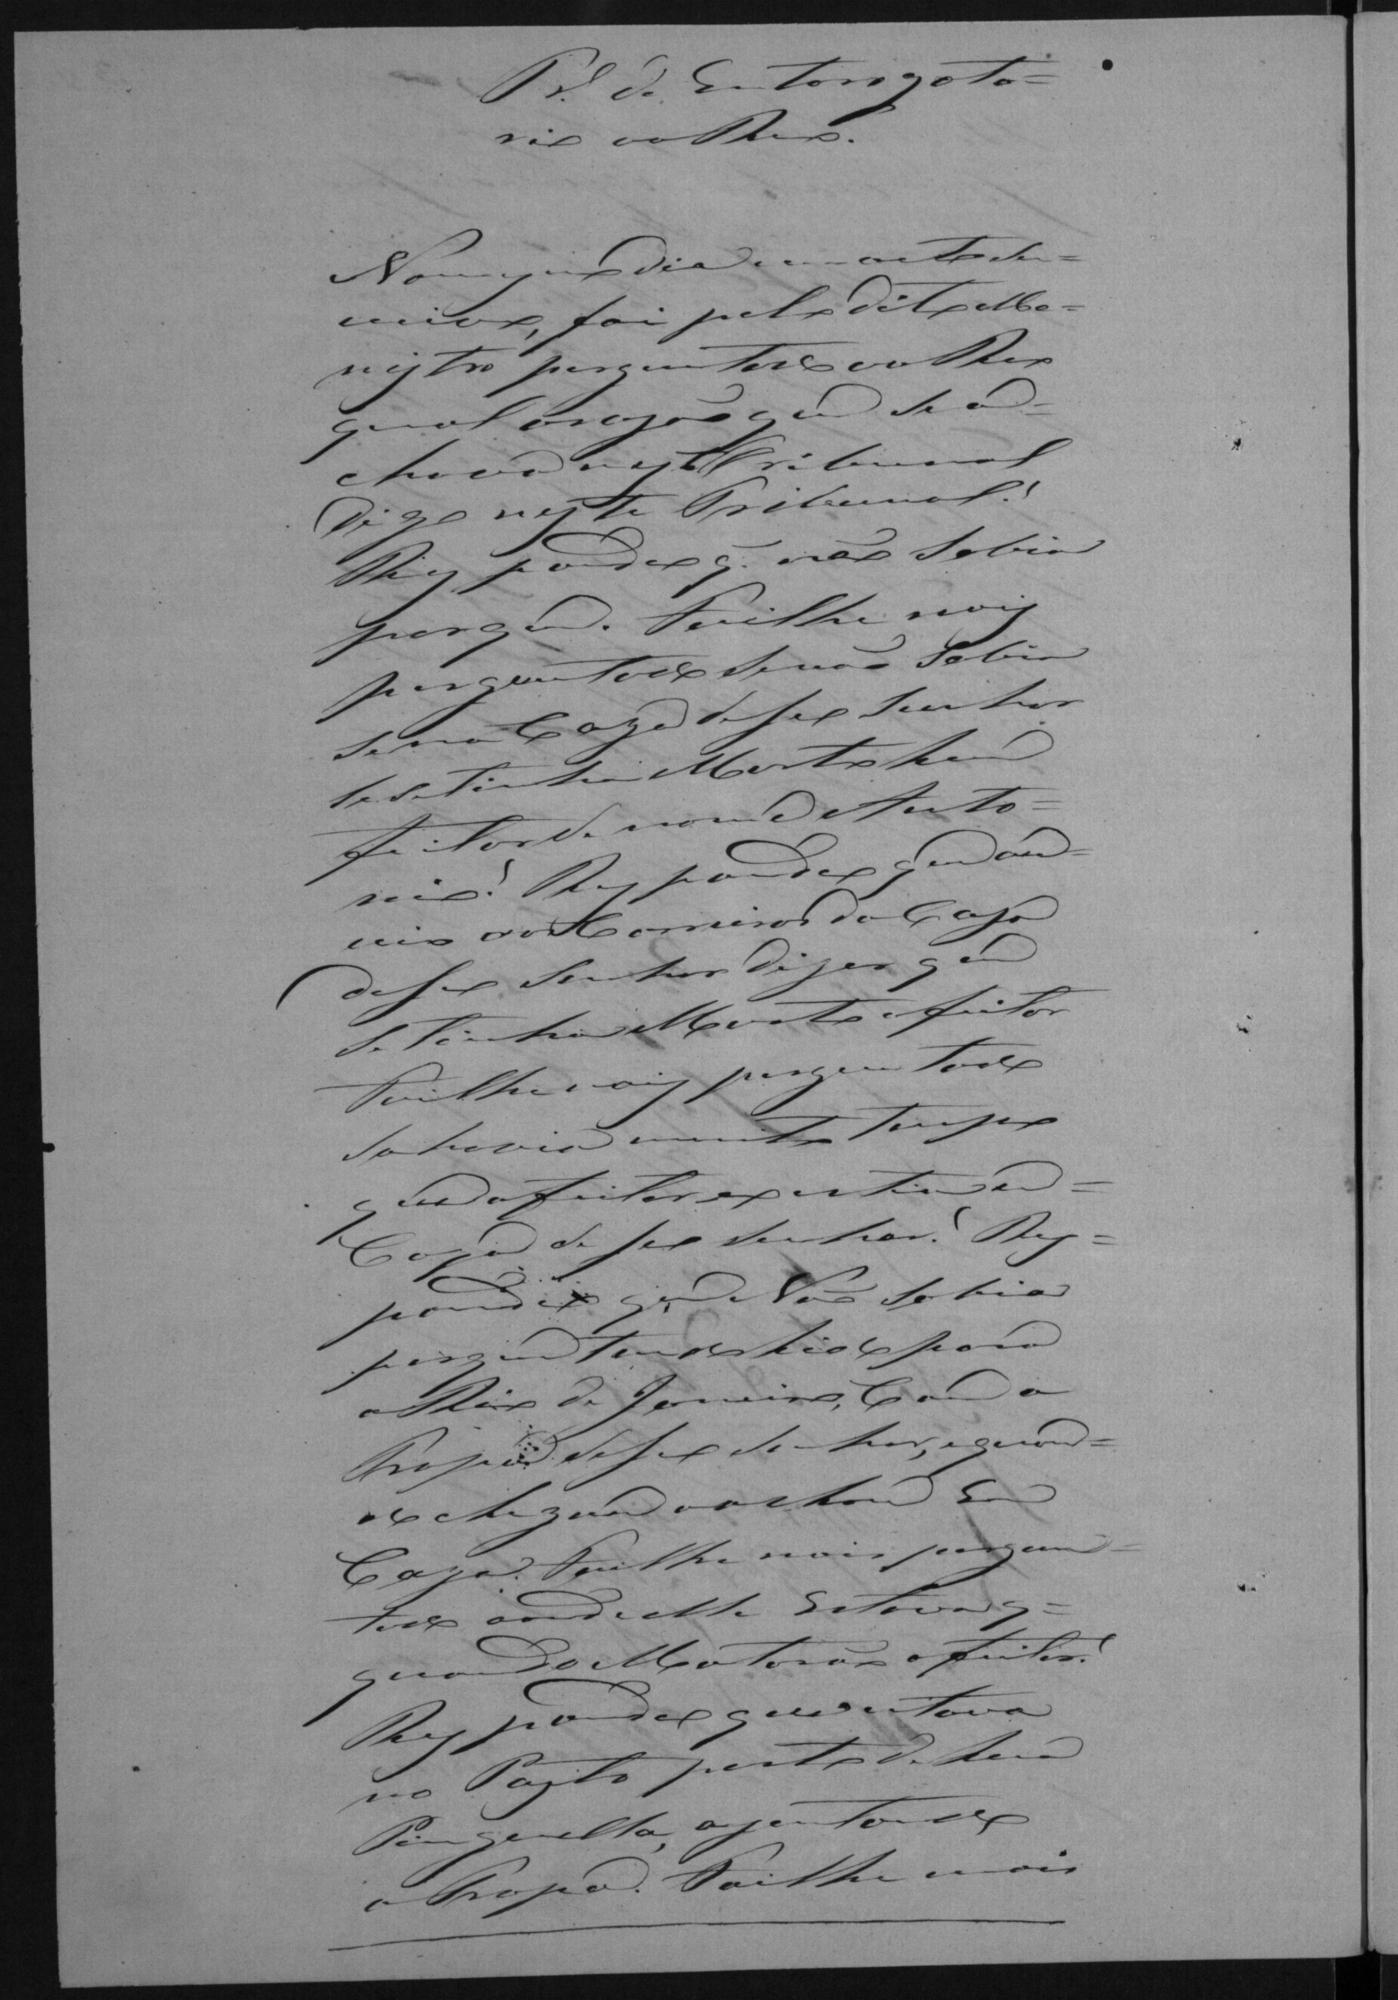 P.º de Entorogato=
rio ao Reo.
No mesmo dia e era ut su=
pra, foi pelo dito Me=
nistro perguntado ao Reo
qual a rasão que se a=
chava neste Tribunal
Digo neste Tribunal!
Respondeo q. não sabia
porque. Foi lhe mais
perguntado se não sabia
se na Caza de seo Senhor
se se tinha Morto hum
feitor de nome Anto=
nio! Respondeo que ou=
vio aos Carreiros da Casa
de seo Senhor dizer que
se tinha Morto o feitor
Foi lhe mais perguntado
se havia muito tempo
que o feitor existia em
Caza de seo Senhor! Res=
pondeo que Não sabia
porque tendo hido para
o Rio de Janeiro, Com a
Tropa de seo Senhor, e quan=
do chegou o achou Em
Caza. Foi lhe mais pergun=
tado onde elle Estava q=
quando Matarão o feitor!
Respondeo que estava
no Pasto perto de huma
Pinguella, ajuntando
a Tropa. Foi lhe mais